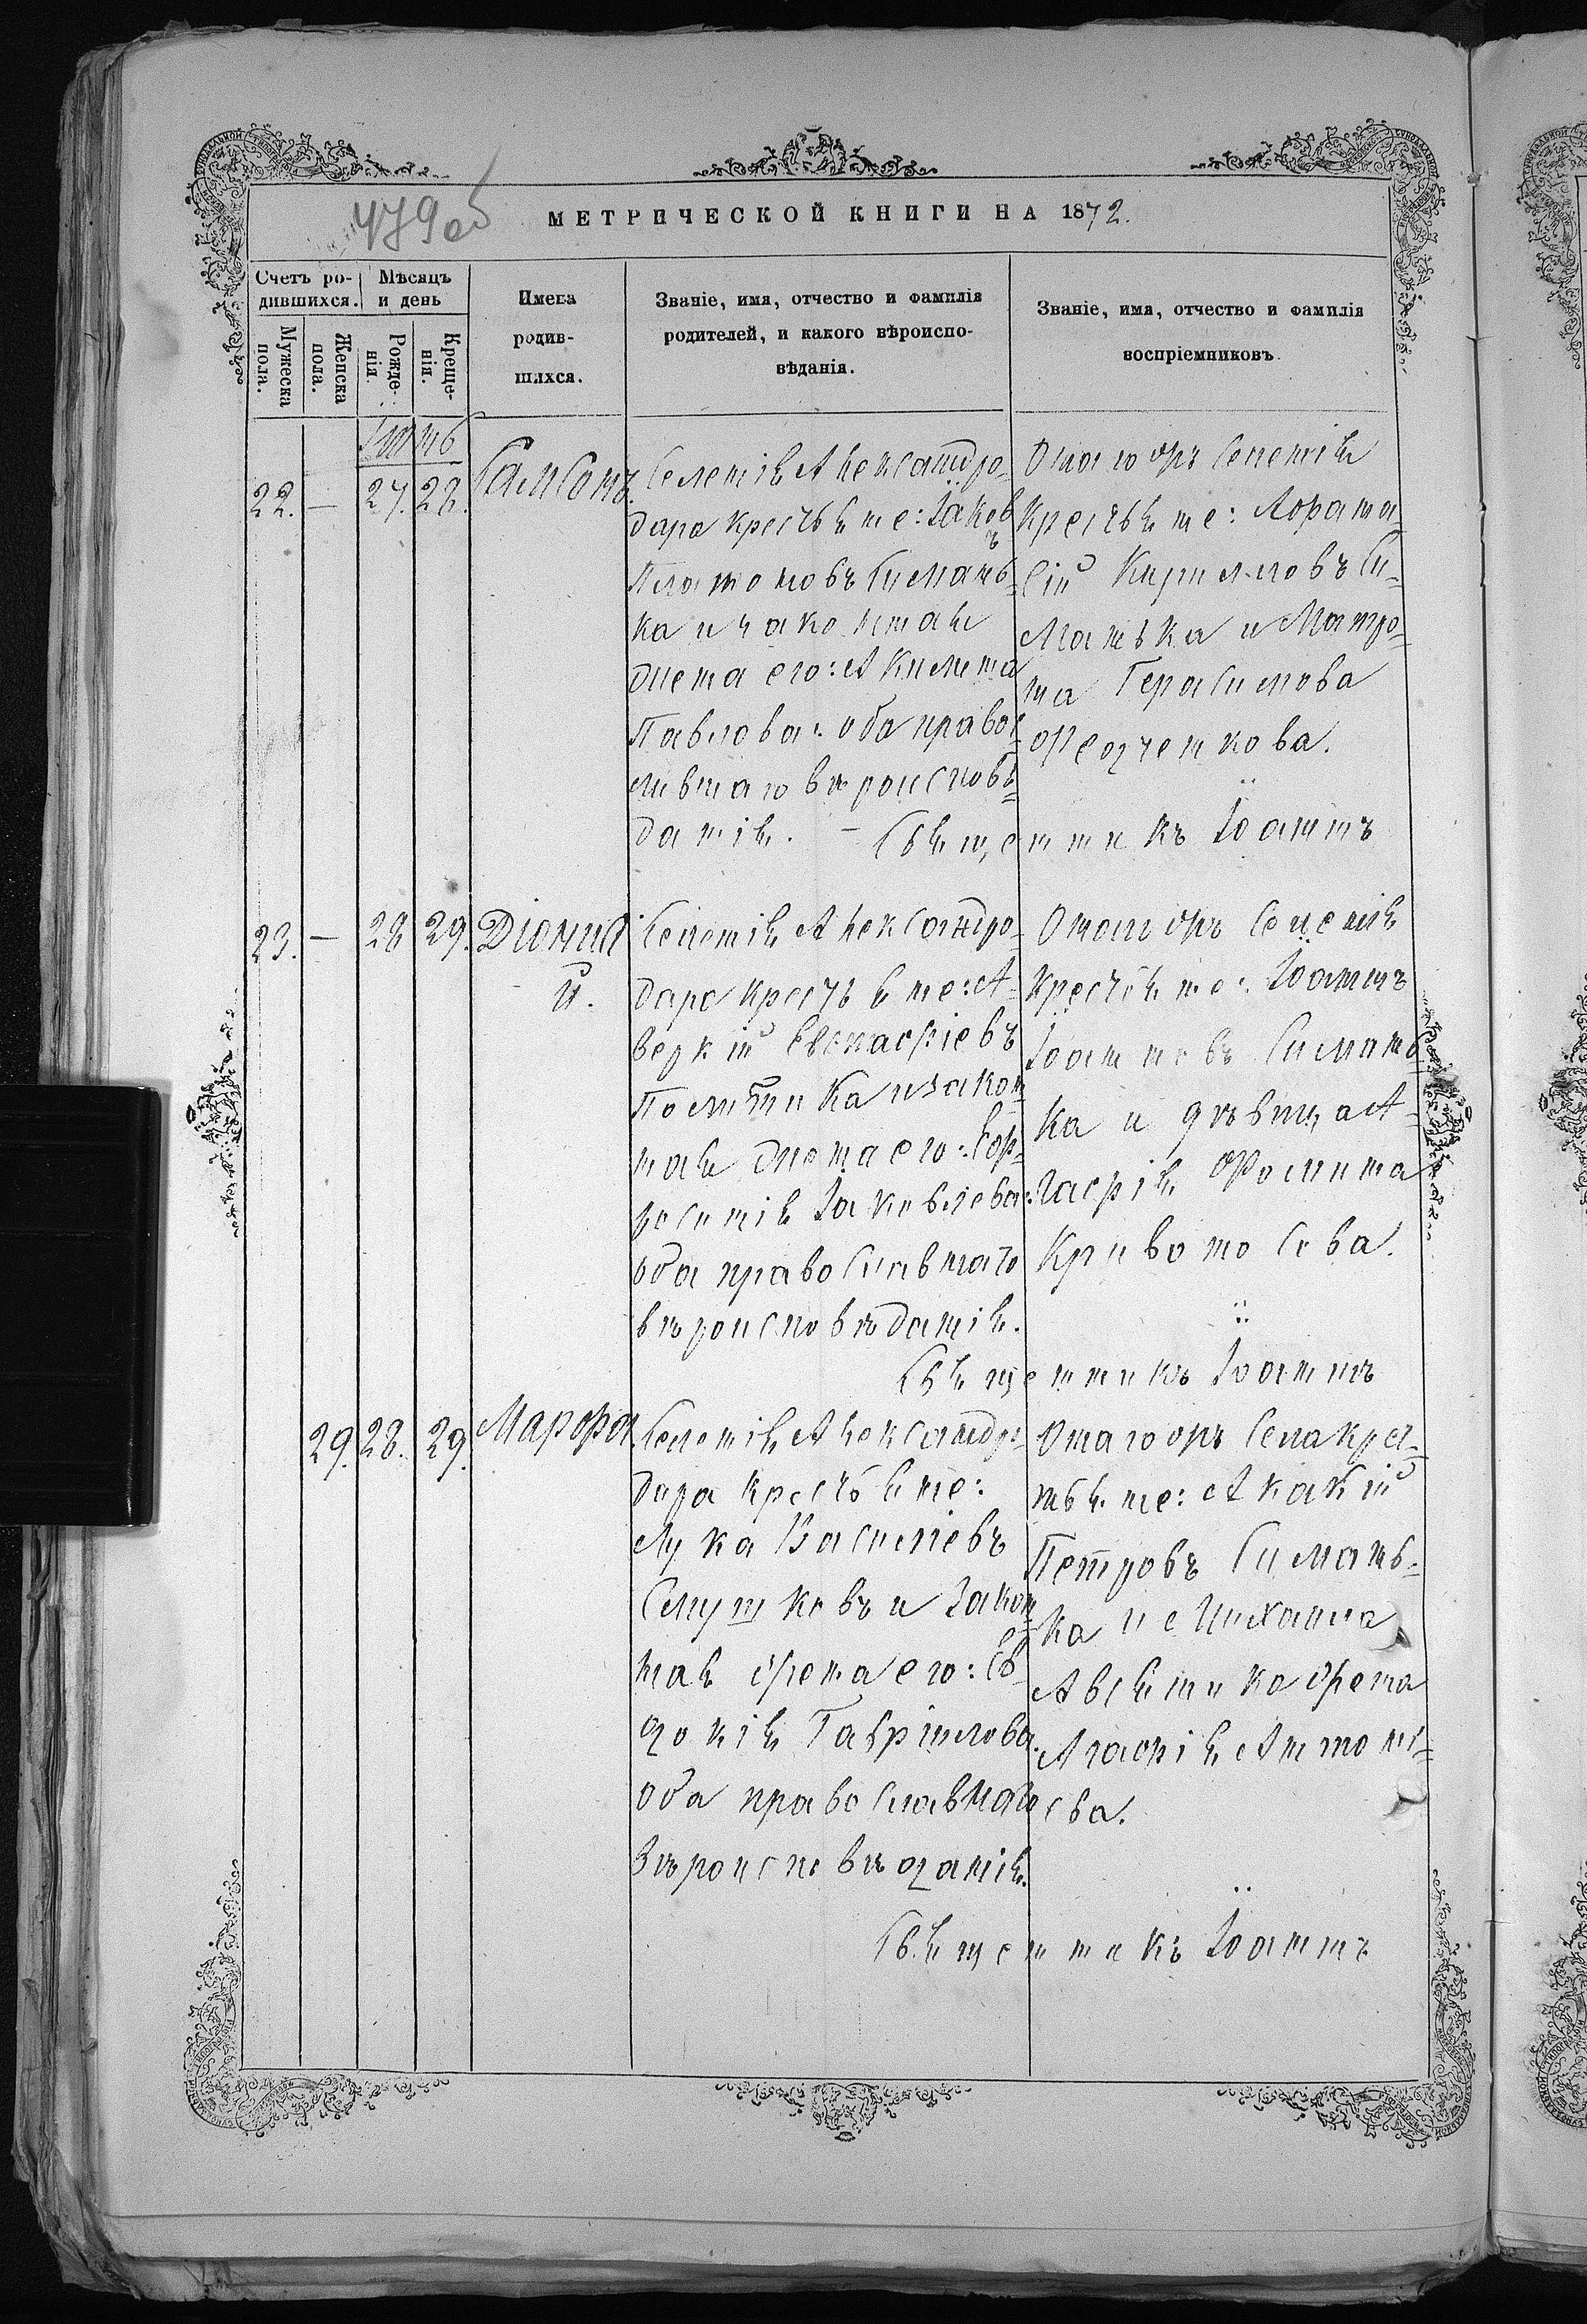 479 об
МЕТРИЧЕСКОЙ КНИГИ НА 1872.
Счетъ ро-
дившихся.
Мѣсяцъ
и день
Мужеска
пола.
Женска
пола.
Рожде-
нія.
Креще-
нія.
Имена
родив-
шихся.
Званіе, имя, отчество и фамилія
родителей, и какого вѣроиспо-
вѣданія.
Званіе, имя, отчество и фамилія
воспріемниковъ.
Іюнь
22. — 27. 28. Самсонъ.
Селенія Александро-
дара крестьяне: Іаковъ
Платоновъ Симань-
ка и законная
жена его: Акилина
Павлова: оба право с-
лавнаго вѣроисповѣ-
данія. –
Онагоже Селенія
Крестьяне: Афана-
сій Кирилловъ Си-
манька и Матро-
на Герасимова
Федченкова.
Священникъ Іоаннъ
23. — 28 29. Діониcі
й.
Селенія Александро-
дара крестьяне: А-
веркій Евстафіевъ
и закон-
ная жена его: Ефр-
осинія Іаковлева:
оба православнаго
вѣроисповѣданія.
Онагоже Селенія
Крестьяне: Іоаннъ
Іоанновъ Симань
ка и дѣвица А-
гафія Фомина
Кривоносова.
Священникъ Іоаннъ
29. 28. 29. Марфа
Селенія Александро-
дара крестьяне:
Лука Василіевъ
и Закон-
ная жена его: Ев-
докія Гавріилова.
оба православнаго
вѣроисповѣданія.
Онагоже Села кре-
стьяне: Акакій
Петровъ Симань-
ка и Михаила
жена
Агафія Антоні-
ева.
Священникъ Іоаннъ